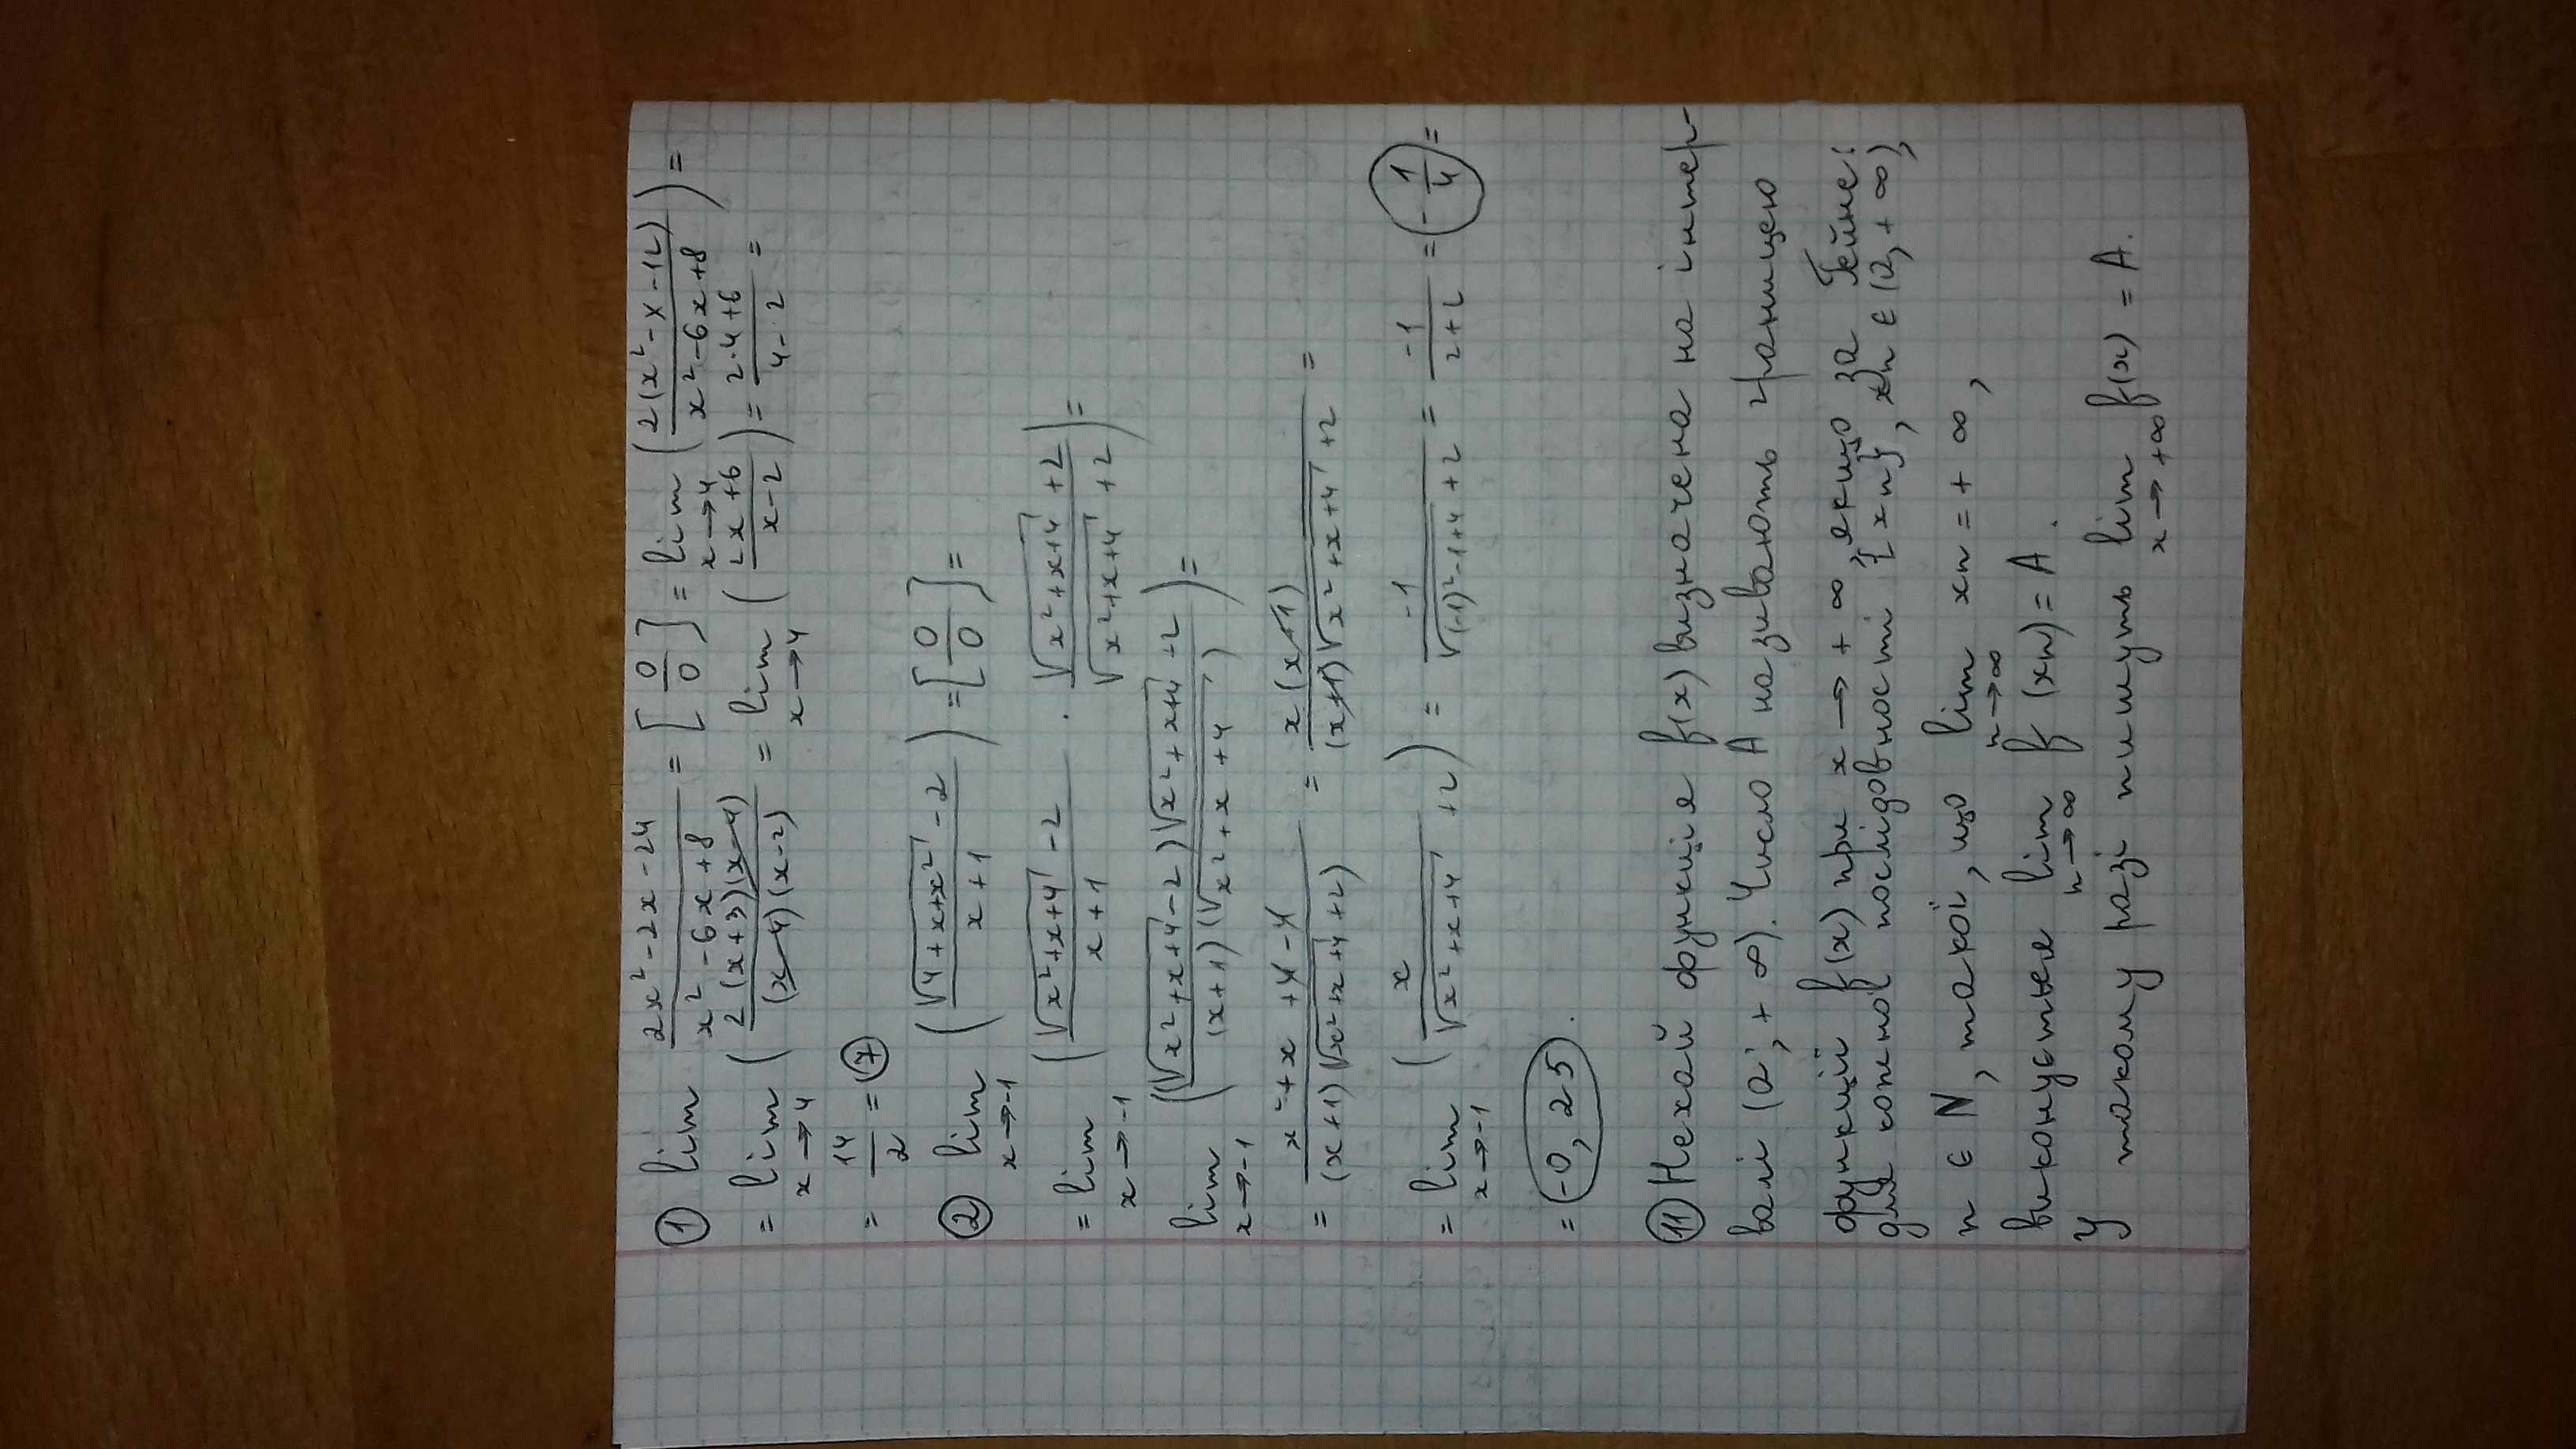 ① lim (2x² - 2x - 24)/(x² - 6x + 8) = [0/0] = lim x→4 (2(x² - x - 12)/(x² - 6x + 8)) =
= lim x→4 (2(x+3)(x-4)/((x-4)(x-2))) = lim x→4 ((2x+6)/(x-2)) = (2·4+6)/(4-2) =
= 14/2 = 7
② lim x→-1 ((√(4+x+x²) - 2)/(x+1)) = [0/0] =
= lim x→-1 ((√(x²+x+4) - 2)/(x+1) · (√(x²+x+4) + 2)/(√(x²+x+4) + 2)) =
lim x→-1 (((√(x²+x+4) - 2)√(x²+x+4) + 2)/((x+1)(√(x²+x+4)))) =
= (x²+x+4-4)/((x+1)(√(x²+x+4)+2)) = x(x+1)/((x+1)√(x²+x+4)+2) =
= lim x→-1 (x/(√(x²+x+4) + 2)) = -1/(√((-1)²-1+4) + 2) = -1/(2+2) = -1/4 =
= -0,25.
⑪ Нехай функція f(x) визначена на інтер-
валі (a; +∞). Число A називають границею
функції f(x) при x → +∞, якщо за Гейне:
для кожної послідовності {xn}, xn ∈ (a, +∞),
n ∈ N, такої, що lim n→∞ xn = +∞,
виконується lim n→∞ f(xn) = A.
У такому разі пишуть lim x→+∞ f(x) = A.